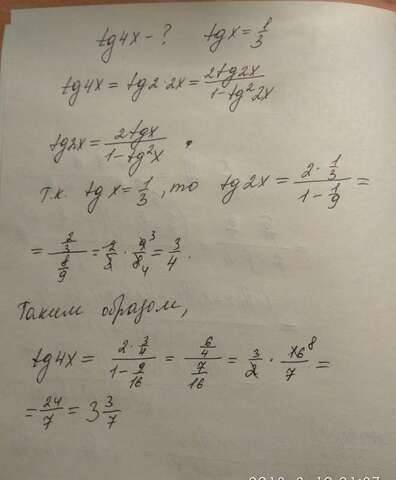 tg4x - ? tgx = 1/3
tg4x = tg2·2x = 2tg2x / 1-tg²2x
tg2x = 2tgx / 1-tg²x .
т.к. tgx = 1/3, то tg2x = 2·1/3 / 1-1/9 =
= 2/3 / 8/9 = 2/3 · 9³/8₄ = 3/4.
Таким образом,
tg4x = 2·3/4 / 1-9/16 = 6/4 / 7/16 = 3/2 · 16⁸/7 =
= 24/7 = 3 3/7